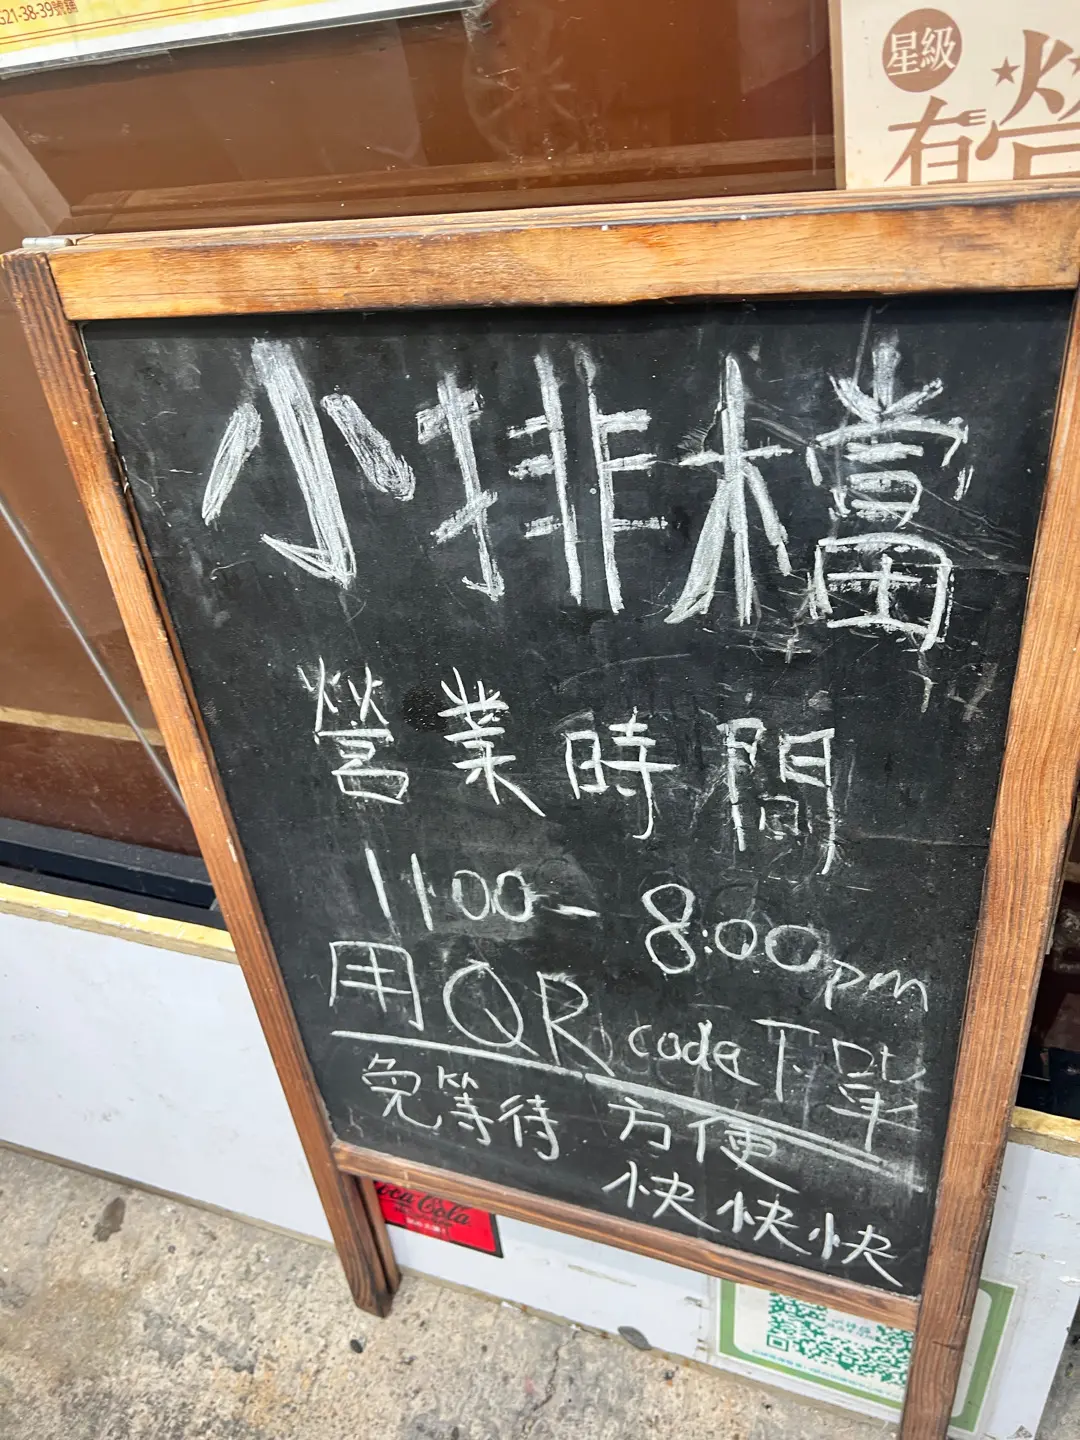 G21-38-39號舖
星級
有營
小排檔
營業時間
11:00- 8:00pm
用QR code下單
免等待 方便
快快快
Coca-Cola